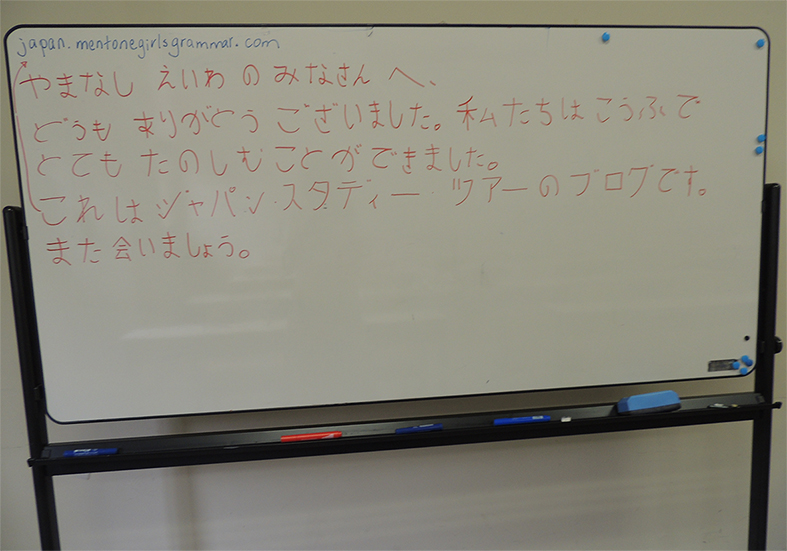 japan.mentonegirlsgrammar.com
やまなし えいわ の みなさん へ、
どうも ありがとう ございました。私たちは こうふで
とても たのしむ ことが できました。
これは ジャパン・スタディー・ツアーの ブログです。
また 会いましょう。